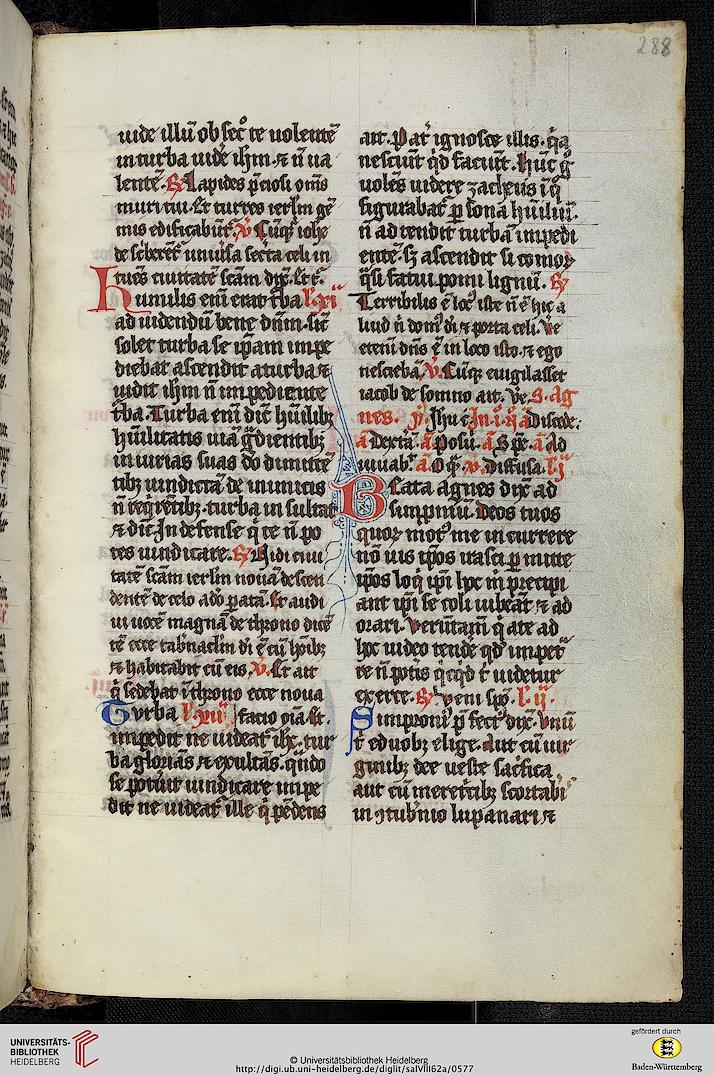 288
uide illū obsec̄ te uolentē
in turba uidē ihm̄ ⁊ n̄ ua
lentē. R̷ Lapides p̄ciosi om̄s
muri tui. Et turres ierl̄m gē
mis edificabūt̄. V̷ Cūq̨ ioh̄e
de
celi in
tuēs ciuitatē sc̄am dix̄. Et t̄.
Humilis eni erat t̄ba l. xi
ad uidendū bene dn̄m. sic̄
solet turba se ip̄am impe
diebat ascendit a turba ⁊
uidit ihm̄ n̄ impediente
t̄ba. Turba eni dic̄ hūilibꝫ
hūilitatis uiā g̊dientibꝫ
iniurias suas do dimittē
tibꝫ uindictā de inimicis
n̄ req̄rētibꝫ. turba insultat
⁊ dic̄. Indefense q̄ te n̄ po
tes uindicare. R̷ Uidi ciui
tatē sc̄am ierl̄m nouā descen
dentē de celo a do paratā. Et audi
ui uocē magnā de throno dicē
tē ecce tab̄naclm̄ di ē cū ho̅ibꝫ
⁊ habitabit cū eis. V̷. Et ait
q̄ sedebat i throno ecce noua
Turba l. xii facio oīa Et.
impedit ne uideat̄ ihc. tur
ba gloriās ⁊ exultās. qn̄do
se potuit uindicare impe
dit ne uideat̄ ille q̄ pēdens
ait. Pat̄ ignosce illis. q̄a
nesciūt qd̄ faciūt. Hūc g̊
uolēs uidere zacheus i q̊
figurabat̄ p̄sona hūiliū.
n̄ adtendit turbā impedi
entē. sꝫ ascendit sicomoꝝ
q̄si fatui pomi lignū. R̷
Terribilis ē loc̄ iste n̄ ē hic a
liud n̄ dom̄ di ⁊ porta celi. Ve
eteni dn̄s ē in loco isto. ⁊ ego
nescieba. V̷. Cūq̨ euigilasset
iacob de somno ait. Ve. S. Ag
nes. y. Ihū c̄ In. i. ꝗ a Discede.
a Dext̄a. a Posu. a Spē. a Ad
iuuab̄. a. v. Diffusa. l. j
Beata agnes dix̄ ad
simpniū. Deos tuos
quoꝝ mot̄ me incurrere
nō uis ip̄os irasci p̄mitte
ip̄os loq̄ ip̄i hec m̄ precipi
ant ip̄i se coli iubeāt ⁊ ad
orari. Verūtam̄ q̄ a te ad
hec uideo tendē qd̄ impet̄
re n̄ potis q̄cq̄d t̄ uidetur
exerce. R̷ Veni spō. l. ij.
Simproni p̄fect̄ dix̄. Vnū
t̄ e duobꝫ elige. Aut cū uir
ginibꝫ dee ueste sac̄fica
aut cū meret̄cibꝫ scortabi
in ꝯtub̄nio lupanari ⁊
UNIVERSITÄTS-
BIBLIOTHEK
HEIDELBERG
© Universitätsbibliothek Heidelberg
http://digi.ub.uni-heidelberg.de/diglit/salVIII62a/0577
gefördert durch
Baden-Württemberg